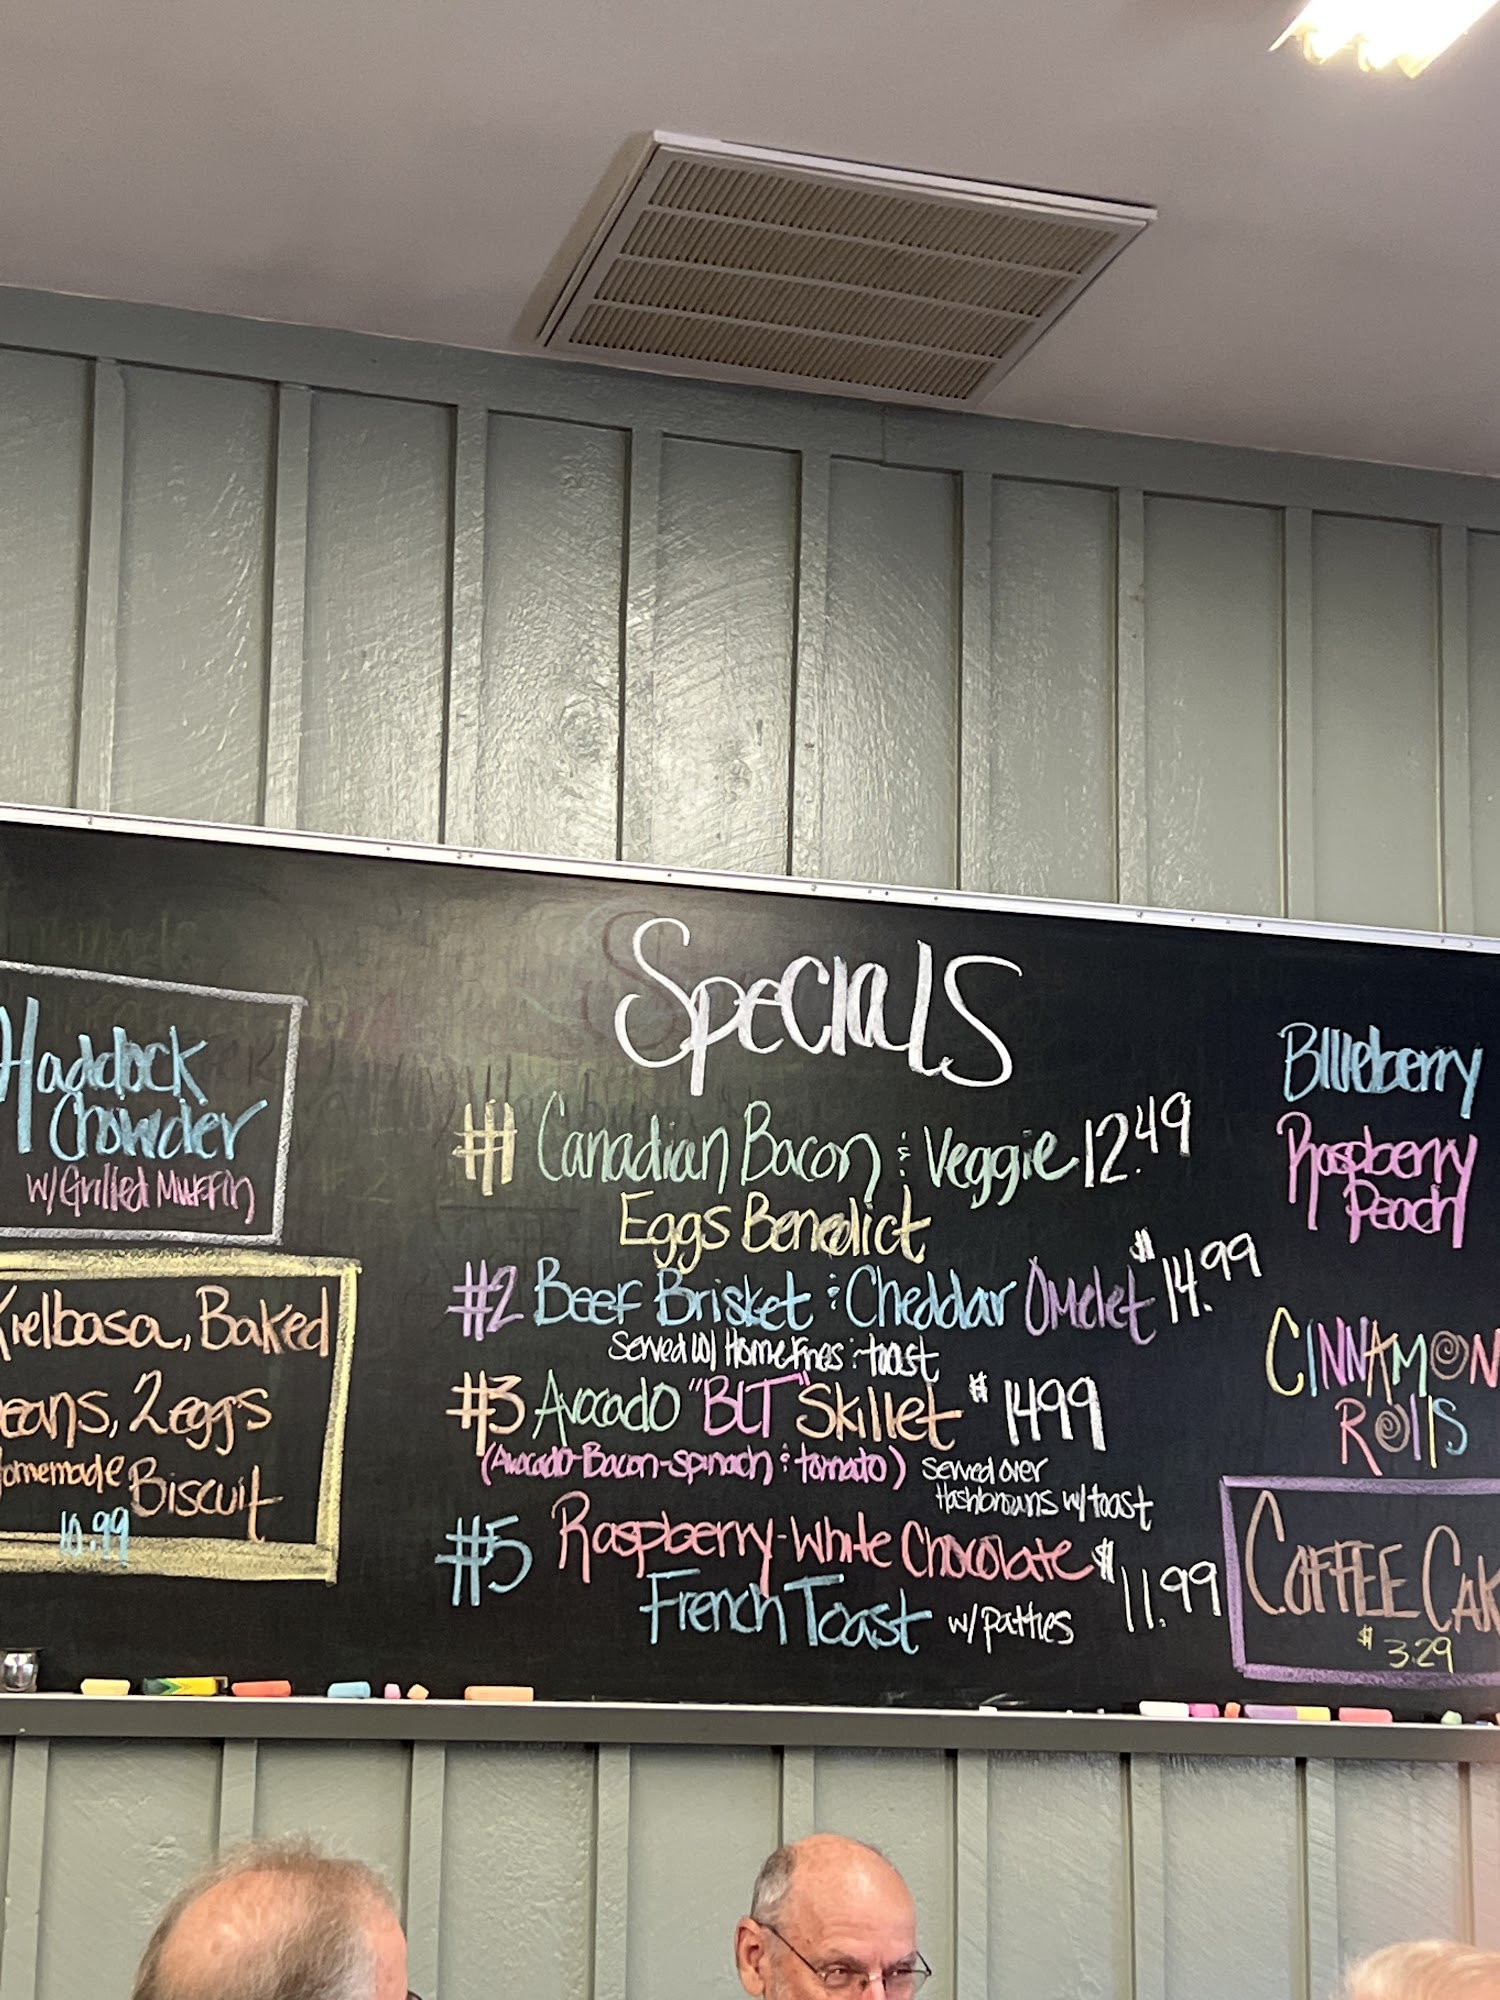 Haddock
Chowder
w/Grilled Muffin
Kielbasa, Baked
eans, 2 eggs
omemade Biscuit
10.99
Specials
#1 Canadian Bacon & Veggie 12.49
Eggs Benedict
#2 Beef Brisket & Cheddar Omelet $14.99
Served w/ Homefries & toast
#3 Avocado "BLT" Skillet $1499
(Avocado-Bacon-spinach & tomato) Served over
Hashbrowns w/ toast
#5 Raspberry-White Chocolate $11.99
French Toast w/ patties
Blueberry
Raspberry
Peach
CINNAMON
ROllS
COFFEE CAK
$3.29